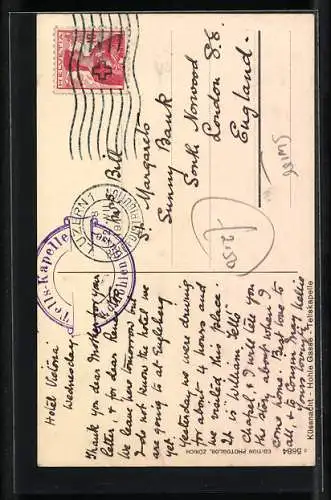 HELVETIA
LUZERN 7
Tells-Kapelle
Miss Bill
St. Margarets
Sunny Bank
South Norwood
London S.E.
England.
SW186
2.50
Hotel Victoria
Wednesday
Thank you dear Mother for your
letter, & for dear
We leave here tomorrow but
I do not know the hotel we
are going to at Engleberg
yet.
Yesterday we were driving
for about 4 hours and
we visited this place.
It is William Tell's
Chapel, & I will tell you
the story about when I
come home. Best love to
all, & to Cousin
yours loving
Küssnacht - Hohle Gasse - Tellskapelle
5684 EDITION PHOTOGLOB, ZÜRICH